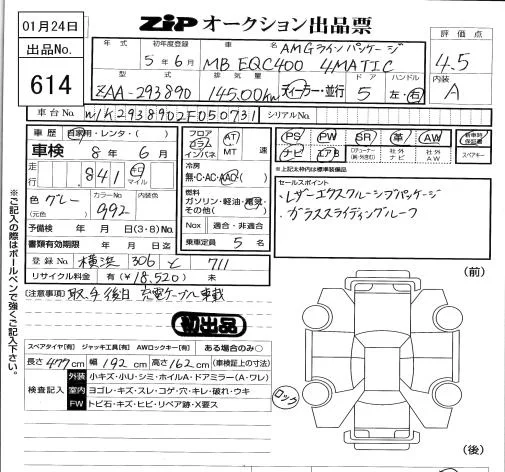 01月24日
出品No.
614
ZIP オークション出品票
評価点
4.5
内装
A
年式 初年度登録 車名
5年6月 MB EQC400 4MATIC AMGラインパッケージ
型式 排気量 ドア ハンドル
ZAA-293890 145.00kw ディーラー・並行 5 左・右
車台No. W1K2938902F050731 シリアルNo.
車歴 自家用・レンタ・( )
車検 8年6月
走行 841 キロ マイル
色 グレー (元色) カラーNo 992 内装色
予備検 年 月 日(3・8)No.
書類有効期限 年 月 日迄
登録No 横浜 306 と 711
リサイクル料金 有(¥18,520) 未
フロア コラム インパネ AT MT 速
冷房 無・C・AC・AAC
燃料 ガソリン・軽油・電気 その他( )
Nox 適合・非適合
乗車定員 5名
PS PW SR 革 AW 新車時保証書
ナビ エアB 社外ナビ 社外AW スペアキー
※上記太わく内は標準装備品
セールスポイント
・レザーエクスクルーシブパッケージ
・ガラススライディングルーフ
(注意事項) 取、手後日 充電ケーブル車載
初出品
スペアタイヤ[有] ジャッキ工具[有] AWロックキー[有] ある場合のみ○
長さ477cm 幅192cm 高さ162cm (車検証上の寸法)
検査記入
外装 小キズ・小U・シミ・ホイルA・ドアミラー(A・ワレ)
室内 ヨゴレ・キズ・スレ・コゲ・穴・キレ・破れ・ウキ
FW トビ石・キズ・ヒビ・リペア跡・X要ス
ロック
(前)
(後)
※ご記入の際はボールペンで強くご記入下さい。